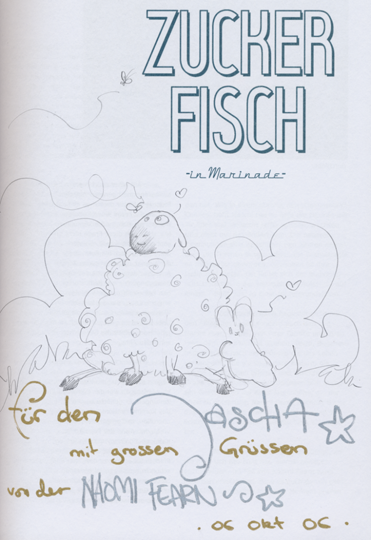 ZUCKER
FISCH
-in Marinade-
für den JASCHA
mit grossen Grüssen
von der NAOMI FEARN
. 06 Okt 06 .